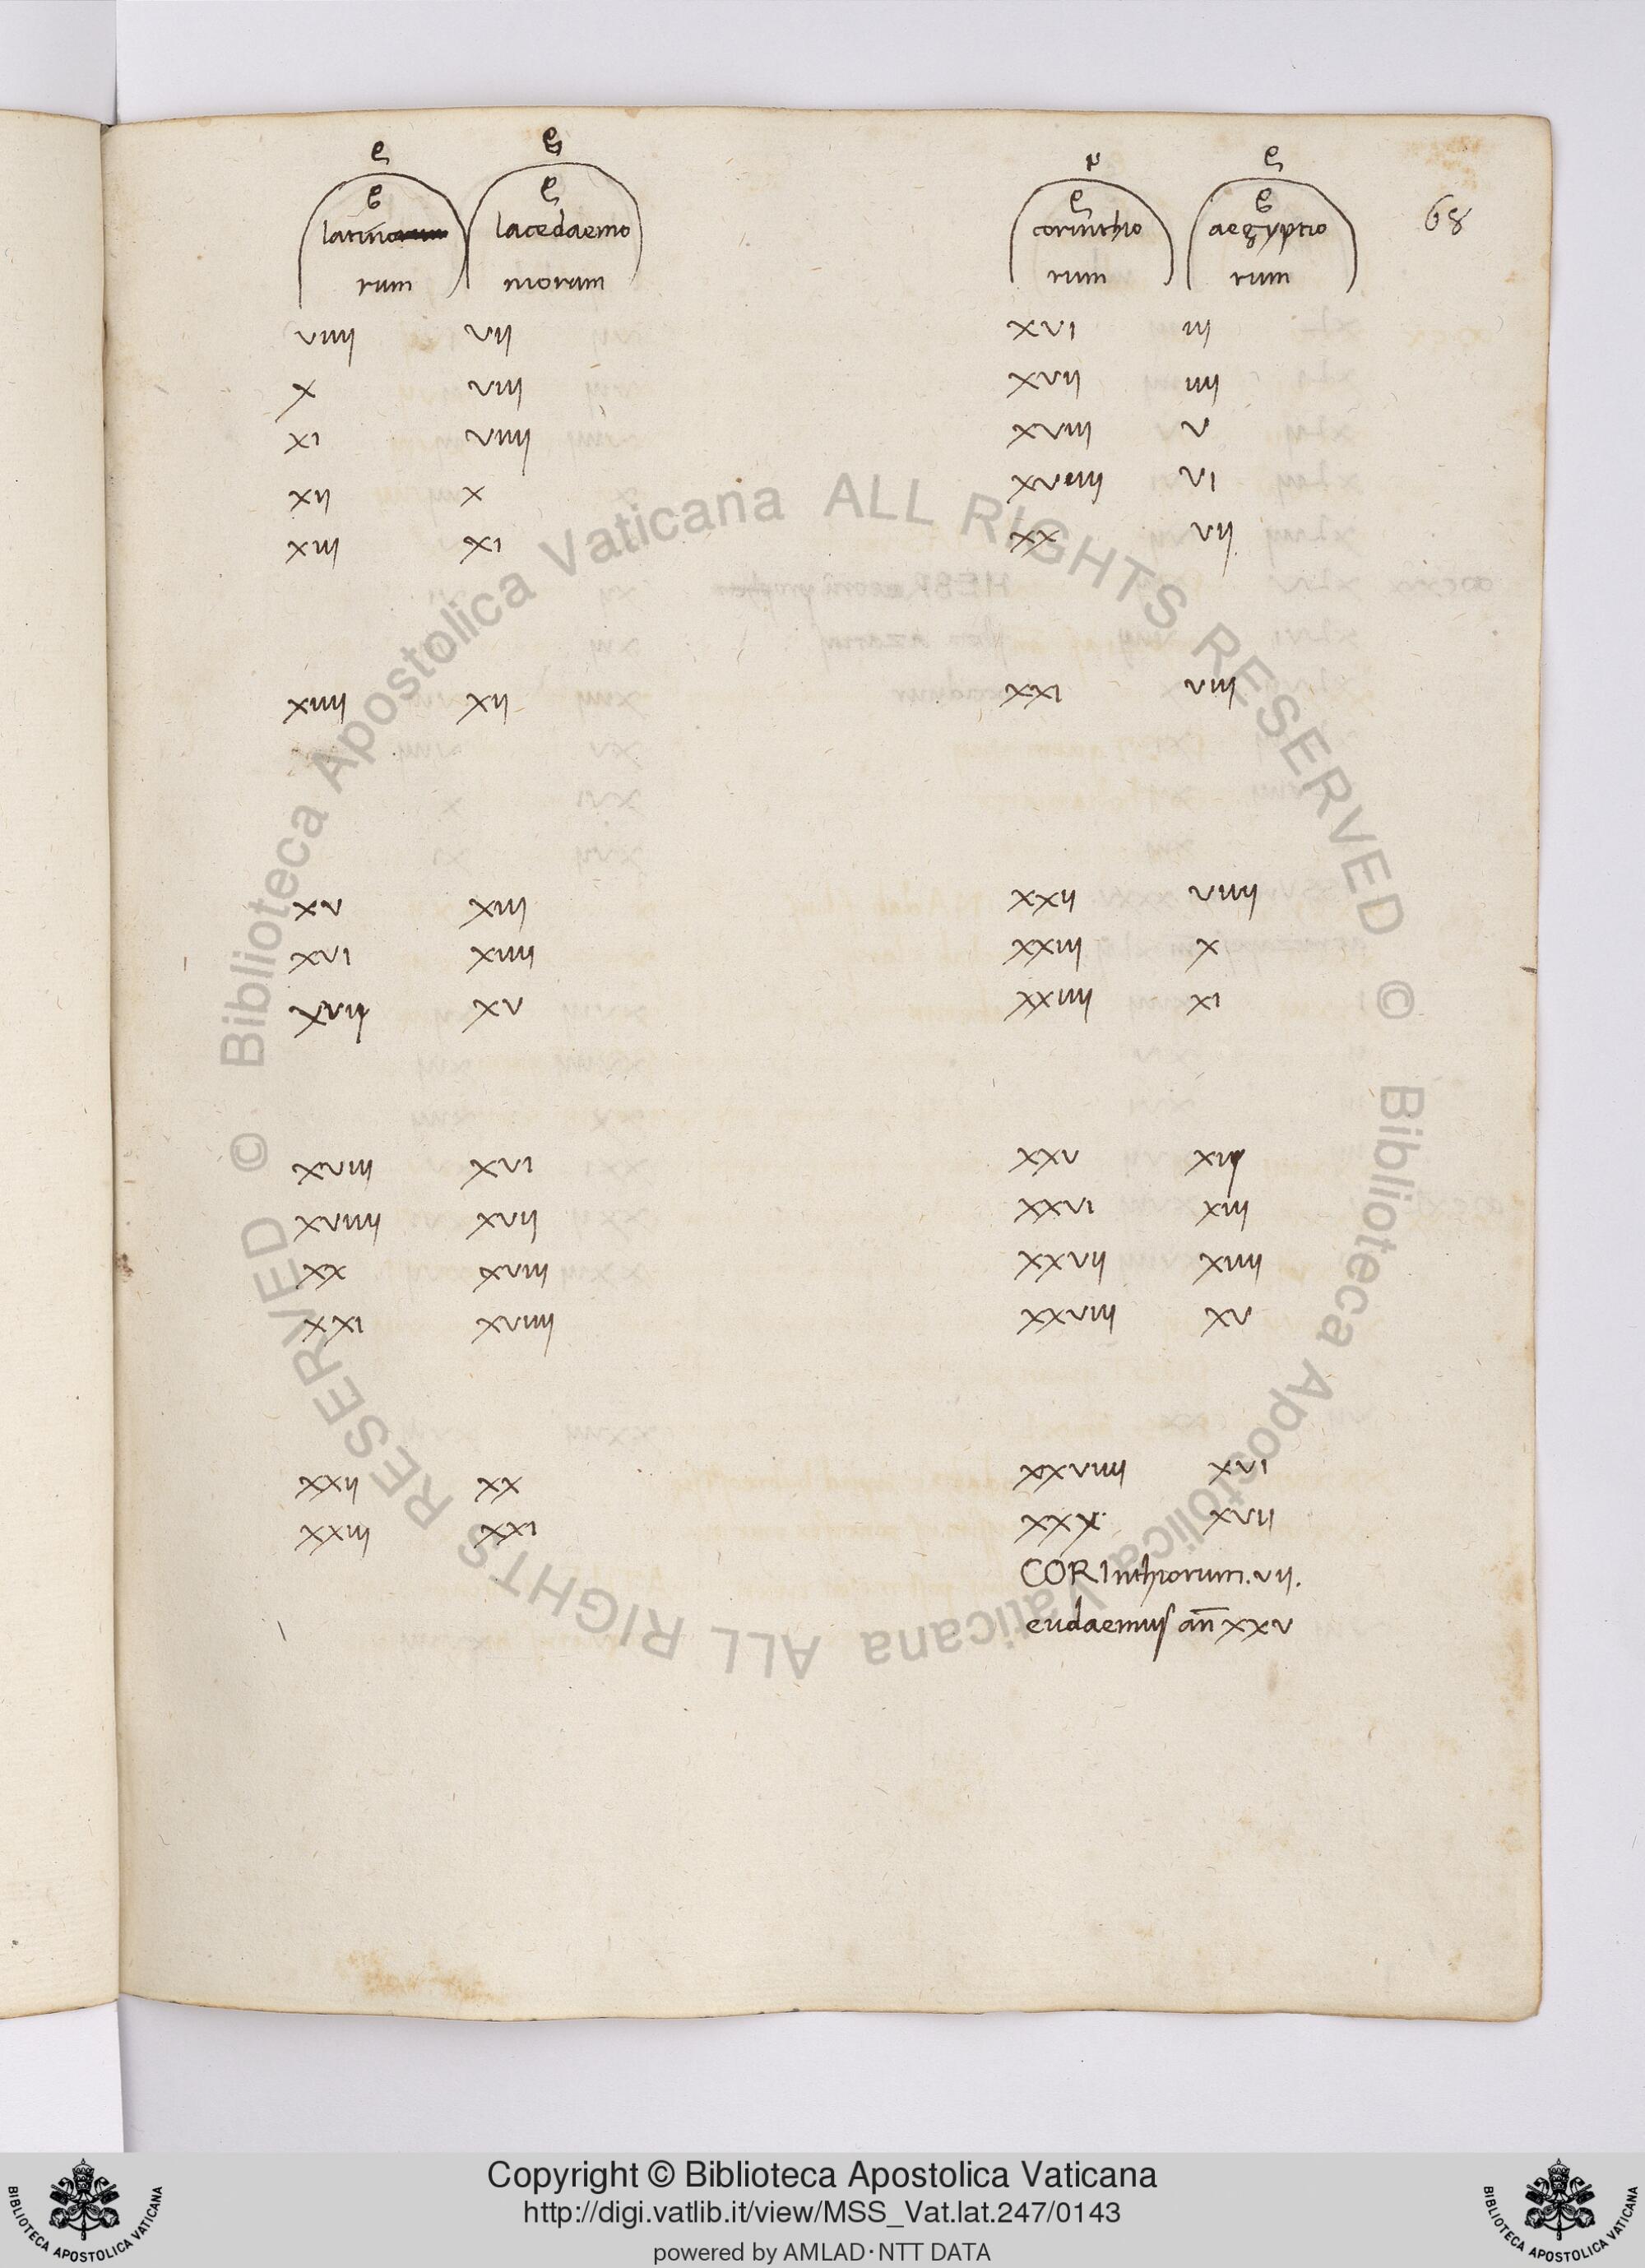 68
latino lacedaemo corinthio aegyptio
rum niorum rum rum
viiii vii xvi iii
x viii xvii iiii
xi viiii xviii v
xii x xviiii vi
xiii xi xx vii
xiiii xii xxi viii
xv xiii xxii viiii
xvi xiiii xxiii x
xvii xv xxiiii xi
xviii xvi xxv xii
xviiii xvii xxvi xiii
xx xviii xxvii xiiii
xxi xviiii xxviii xv
xxii xx xxviiii xvi
xxiii xxi xxx xvii
CORInthiorum.vii.
eudaemus an̄ xxv
© Biblioteca Apostolica Vaticana ALL RIGHTS RESERVED
© Biblioteca Apostolica Vaticana ALL RIGHTS RESERVED
Copyright © Biblioteca Apostolica Vaticana
http://digi.vatlib.it/view/MSS_Vat.lat.247/0143
powered by AMLAD·NTT DATA
BIBLIOTECA APOSTOLICA VATICANA
BIBLIOTECA APOSTOLICA VATICANA